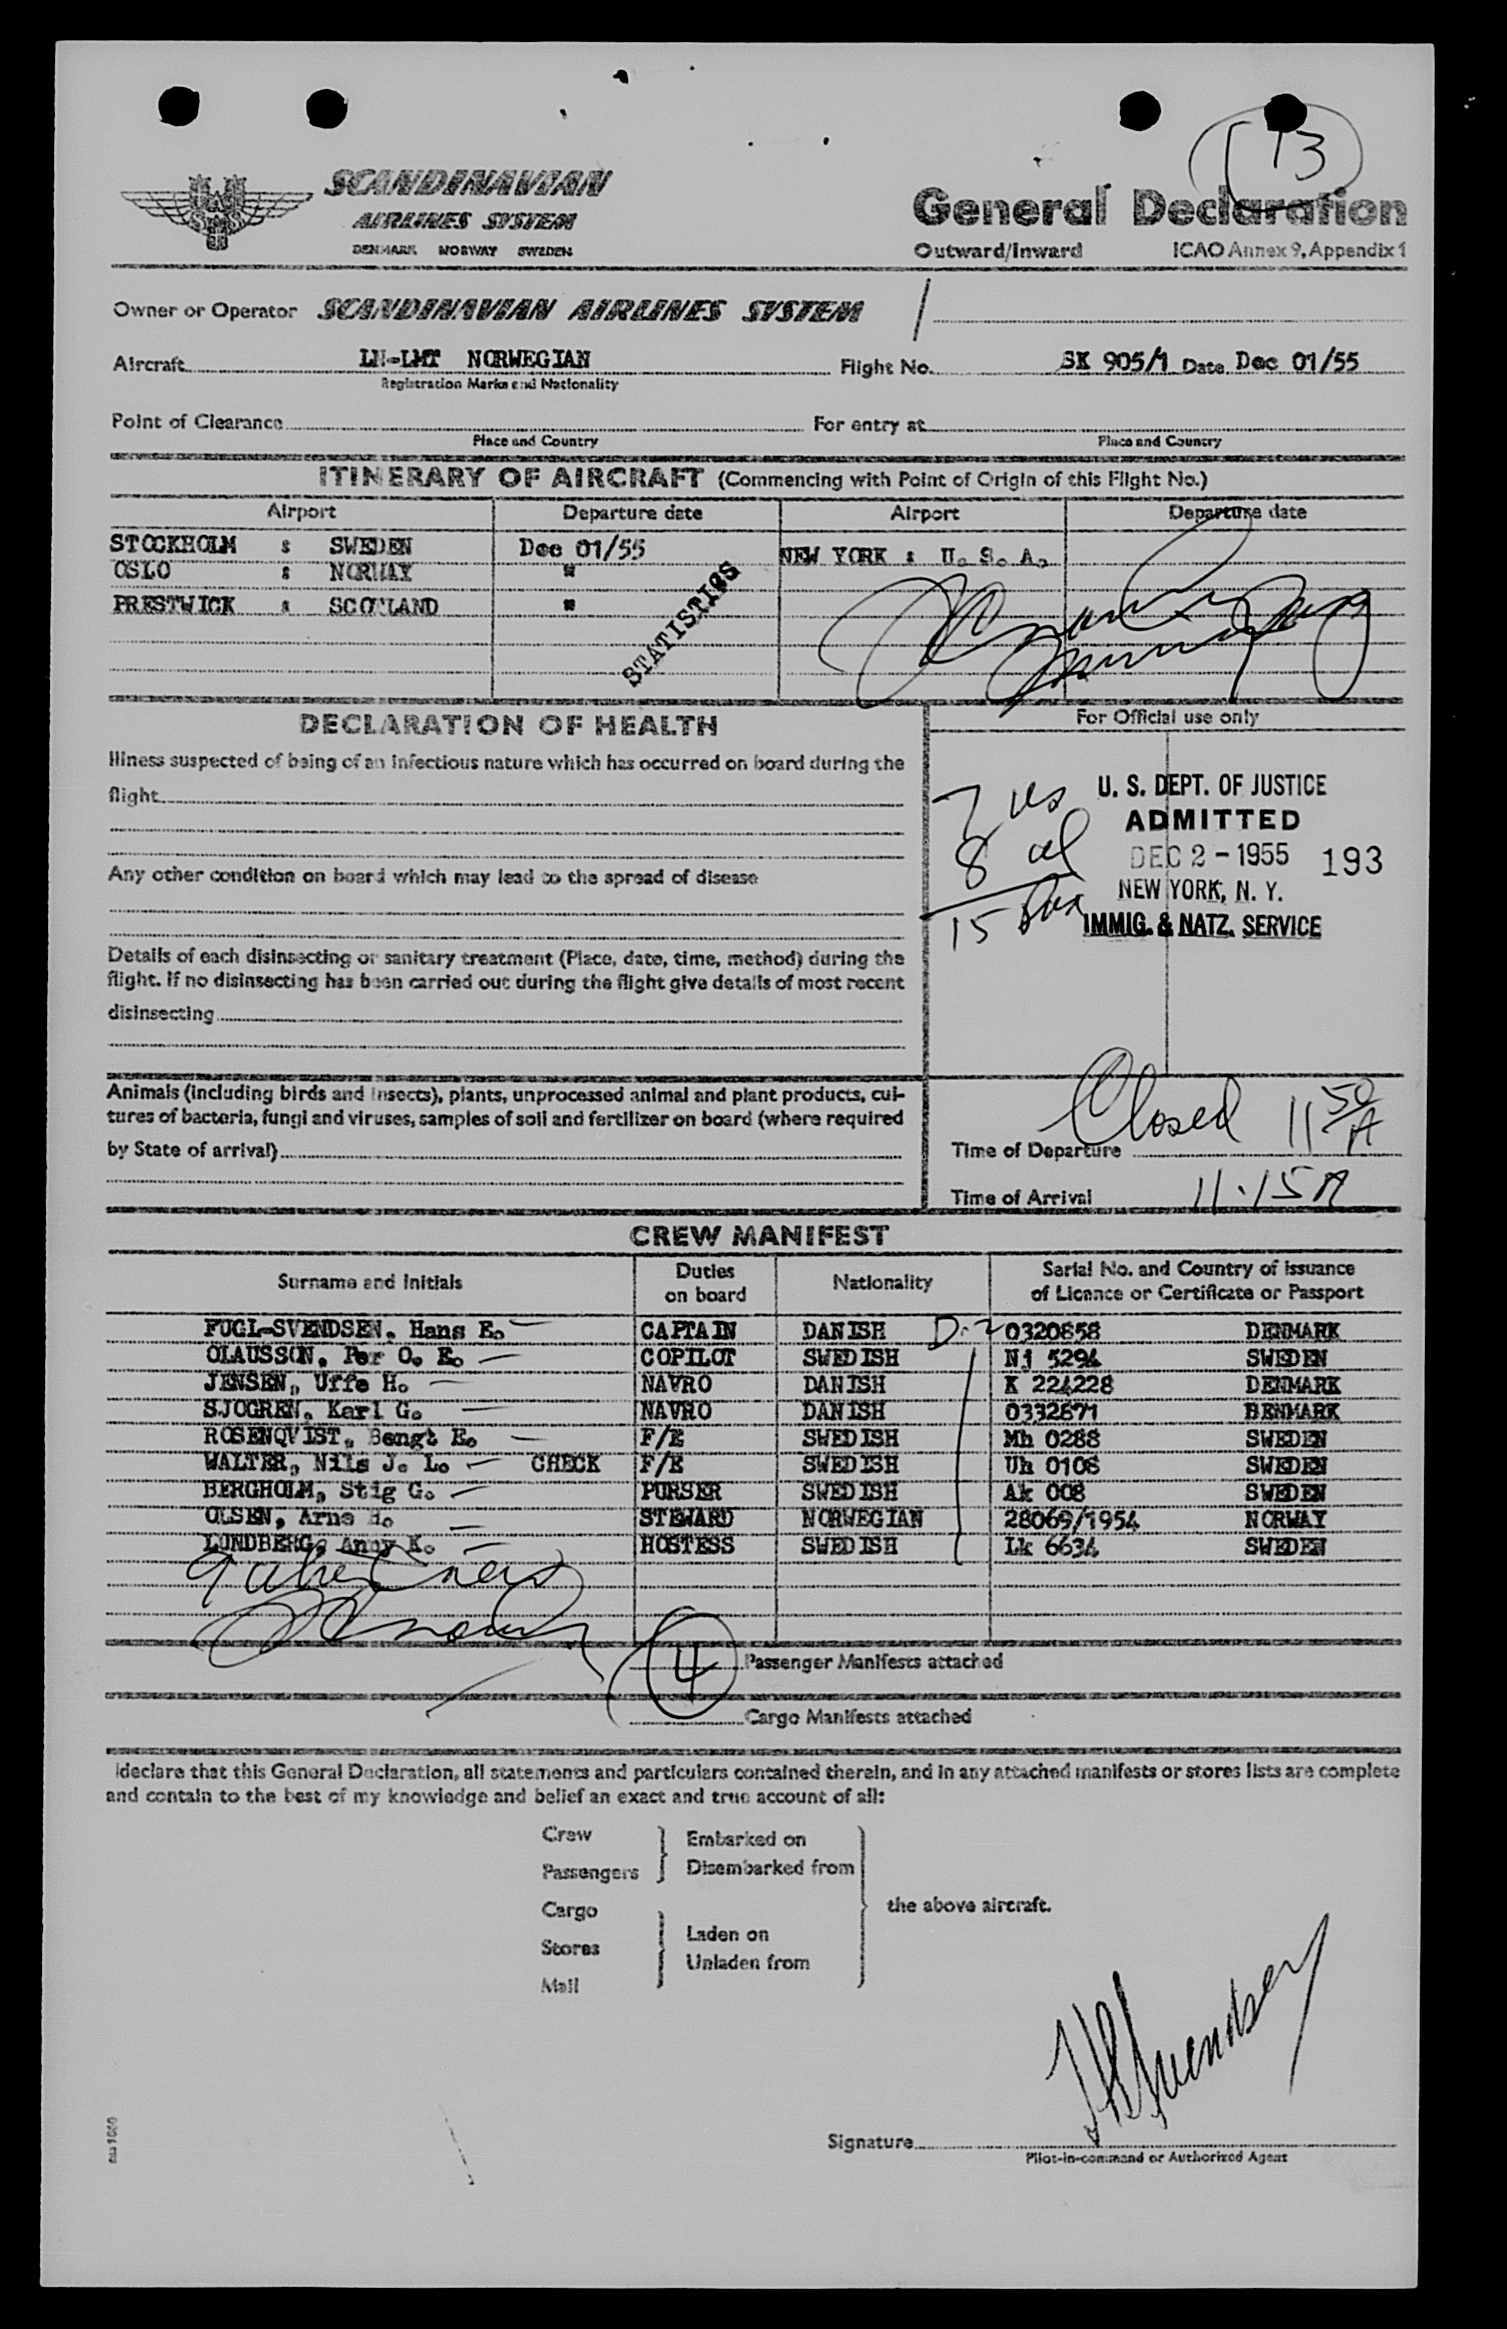 13
SCANDINAVIAN
AIRLINES SYSTEM
DENMARK NORWAY SWEDEN
General Declaration
Outward/Inward ICAO Annex 9, Appendix 1
Owner or Operator SCANDINAVIAN AIRLINES SYSTEM /
Aircraft LN-LMT NORWEGIAN Flight No. SK 905/1 Date Dec 01/55
Registration Marks and Nationality
Point of Clearance For entry at
Place and Country Place and Country
ITINERARY OF AIRCRAFT (Commencing with Point of Origin of this Flight No.)
Airport Departure date Airport Departure date
STOCKHOLM : SWEDEN Dec 01/55 NEW YORK : U. S. A.
OSLO : NORWAY "
PRESTWICK : SCOTLAND "
STATISTICS
DECLARATION OF HEALTH
For Official use only
Illness suspected of being of an infectious nature which has occurred on board during the
flight
Any other condition on board which may lead to the spread of disease
Details of each disinsecting or sanitary treatment (Place, date, time, method) during the
flight. If no disinsecting has been carried out during the flight give details of most recent
disinsecting
7 us
8 al
15 pax
U. S. DEPT. OF JUSTICE
ADMITTED
DEC 2 - 1955 193
NEW YORK, N. Y.
IMMIG. & NATZ. SERVICE
Animals (including birds and insects), plants, unprocessed animal and plant products, cul-
tures of bacteria, fungi and viruses, samples of soil and fertilizer on board (where required
by State of arrival)
Closed 11 50/A
Time of Departure
Time of Arrival 11.15 A
CREW MANIFEST
Surname and Initials Duties on board Nationality Serial No. and Country of issuance of Licence or Certificate or Passport
FUGL-SVENDSEN, Hans E. CAPTAIN DANISH D-2 0320858 DENMARK
OLAUSSON, Per O. E. COPILOT SWEDISH Nj 5294 SWEDEN
JENSEN, Uffe H. NAVRO DANISH K 224228 DENMARK
SJOGREN, Karl G. NAVRO DANISH 0332871 DENMARK
ROSENQVIST, Bengt E. F/E SWEDISH Mh 0288 SWEDEN
WALTER, Nils J. L. CHECK F/E SWEDISH Uh 0108 SWEDEN
BERGHOLM, Stig G. PURSER SWEDISH Ak 008 SWEDEN
OLSEN, Arne H. STEWARD NORWEGIAN 28069/1954 NORWAY
LUNDBERG, Anny K. HOSTESS SWEDISH Lk 6634 SWEDEN
4 Passenger Manifests attached
Cargo Manifests attached
I declare that this General Declaration, all statements and particulars contained therein, and in any attached manifests or stores lists are complete
and contain to the best of my knowledge and belief an exact and true account of all:
Crew
Passengers
Embarked on
Disembarked from
Cargo
Stores
Mail
Laden on
Unladen from
the above aircraft.
Signature
Pilot-in-command or Authorized Agent